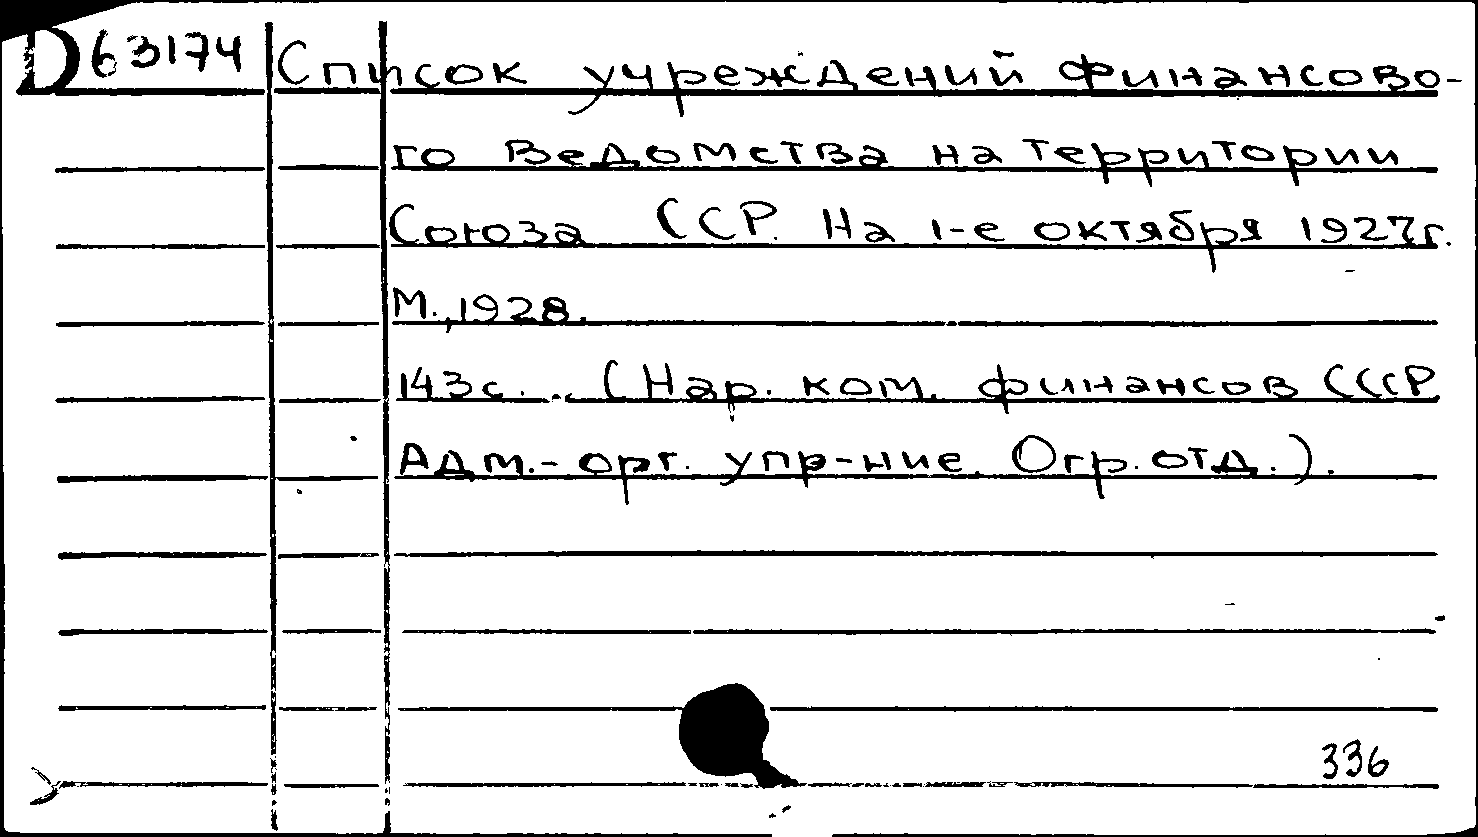 D63174 Список учреждений финансово-
го ведомства на территории
Союза ССР. На 1-е октября 1927г.
М., 1928.
143с. (Нар. ком. финансов СССР.
Адм.-орг. упр-ние. Огр. отд.).
336